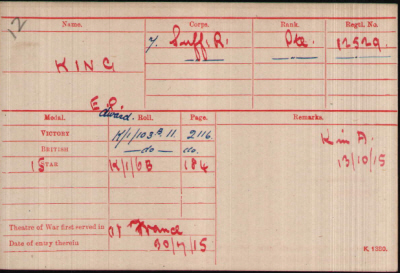 12
Name. Corps. Rank. Regtl. No.
KING 7. Suff. R. Pte. 12529
E. R.
Edward
Medal. Roll. Page. Remarks.
VICTORY K/1/103 B 11 2116
BRITISH —do— do.
15 STAR K/1/6B 184
K in A.
13/10/15
Theatre of War first served in (1) France
Date of entry therein 30/7/15
K. 1380.